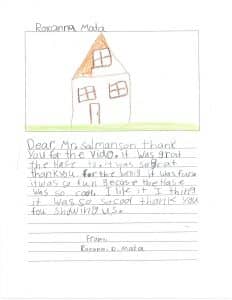 Roxanna Mata
Dear Mr. Salmanson thank
you for the vido. it was grat
the Hase is it was so grat
thankyou for the it was fun
it was so fun Becose the Hase
was so cool. I like it I thing
it was so socool thank you
fou showing us.
From:
Roxanna. D. Mata